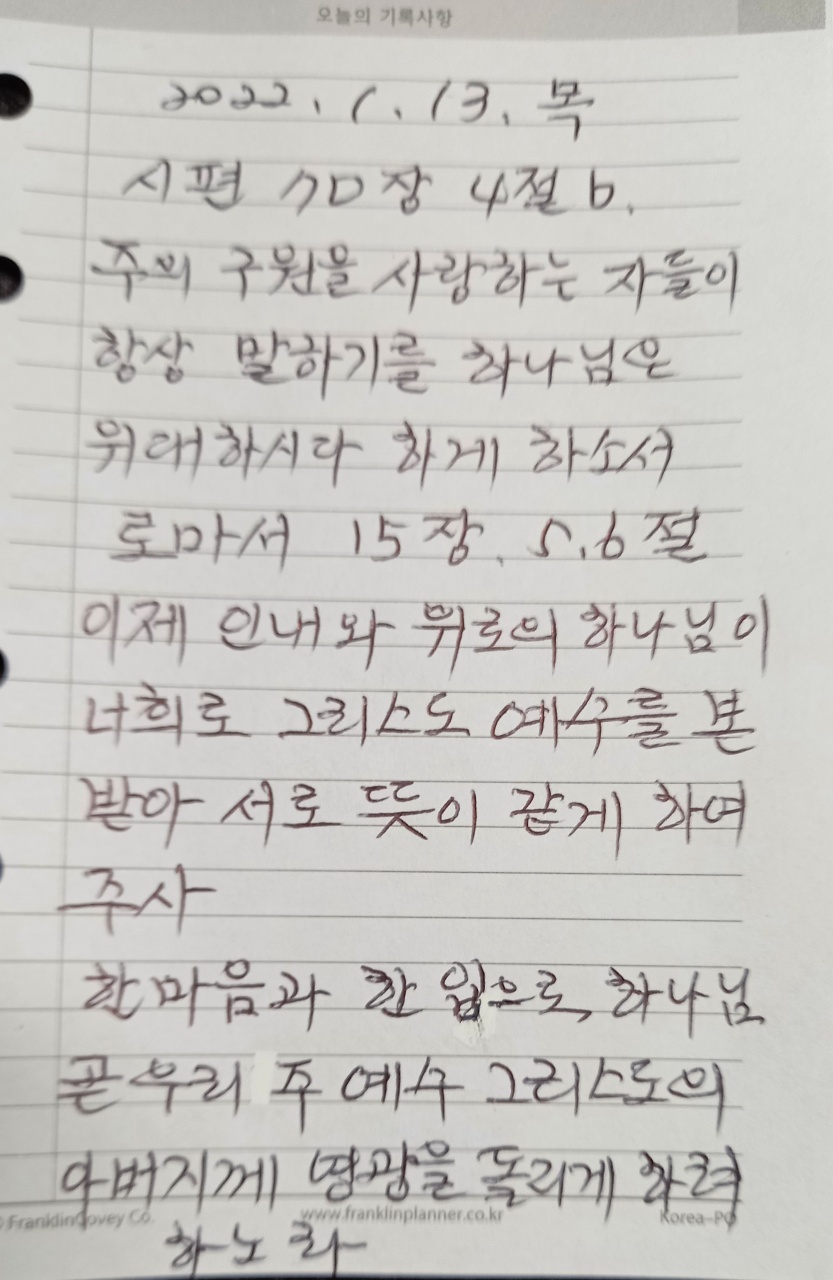 오늘의 기록사항
2022. 1. 13. 목
시편 70장 4절 b.
주의 구원을 사랑하는 자들이
항상 말하기를 하나님은
위대하시다 하게 하소서
로마서 15장. 5.6절
이제 인내와 위로의 하나님이
너희로 그리스도 예수를 본
받아 서로 뜻이 같게 하여
주사
한마음과 한 입으로, 하나님
곧 우리 주 예수 그리스도의
아버지께 영광을 돌리게 하려
© FranklinCovey Co. www.franklinplanner.co.kr Korea-PO
하노라